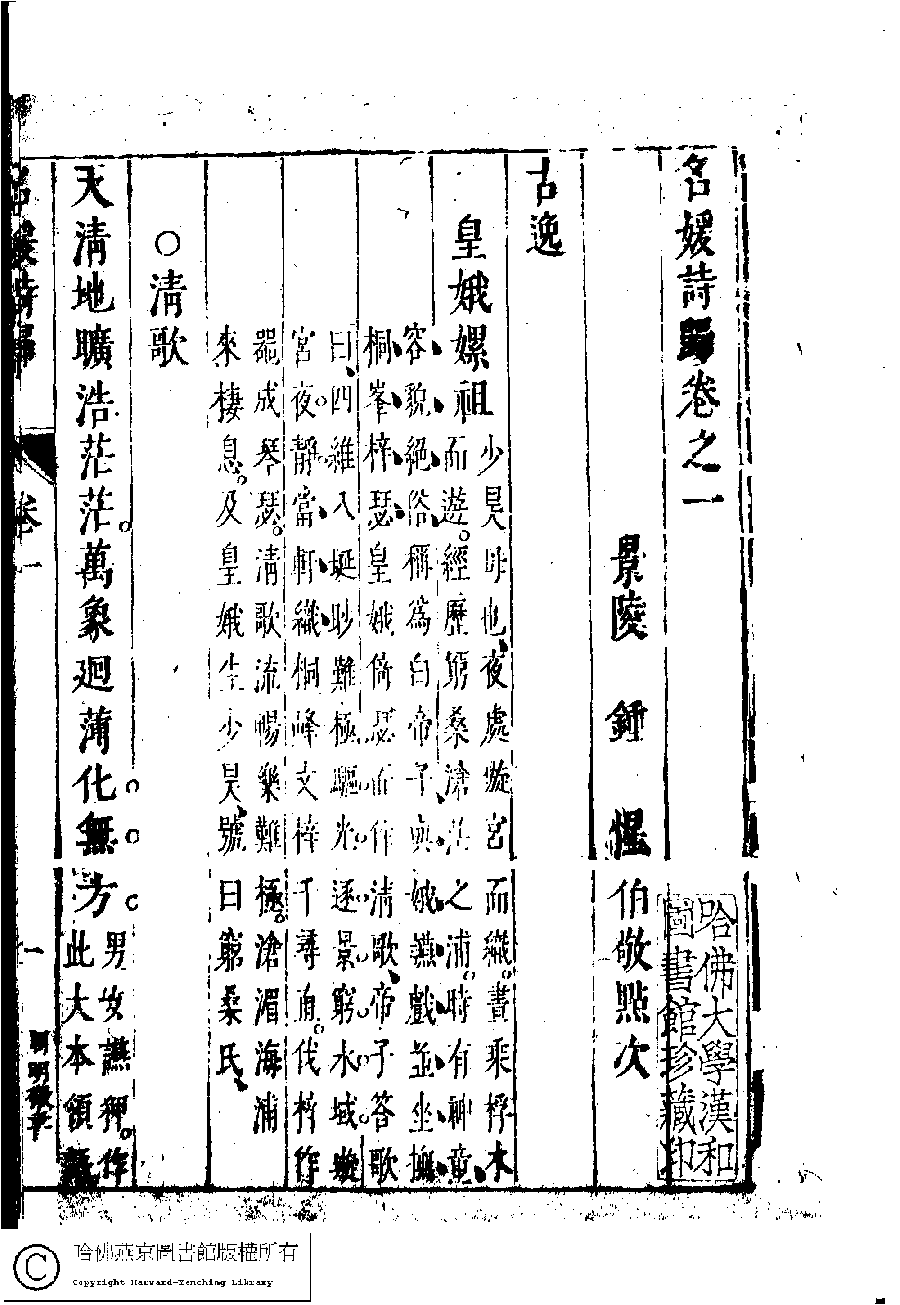 名媛詩歸卷之一
景陵 鍾 惺伯敬點次
古逸
皇娥嫘祖
少昊母也夜處璇宮而織晝乘桴木
而遊經歷窮桑滄茫之浦時有神童
容貌絕俗稱為白帝子與娥讌戲並坐撫
桐峯梓瑟皇娥倚瑟而作清歌帝子答歌
曰四維八埏眇難極驅光逐景窮水域璇
宮夜靜當軒織桐峰文梓千尋直伐梓作
器成琴瑟清歌流暢樂難極滄湄海浦
來棲息及皇娥生少昊號曰窮桑氏
○清歌
天清地曠浩茫茫萬象迴薄化無方
男女讌狎作
此大本領
名媛詩歸
卷一
一
哈佛大學漢和
圖書館珍藏印
哈佛燕京圖書館版權所有
Copyright Harvard-Yenching Library